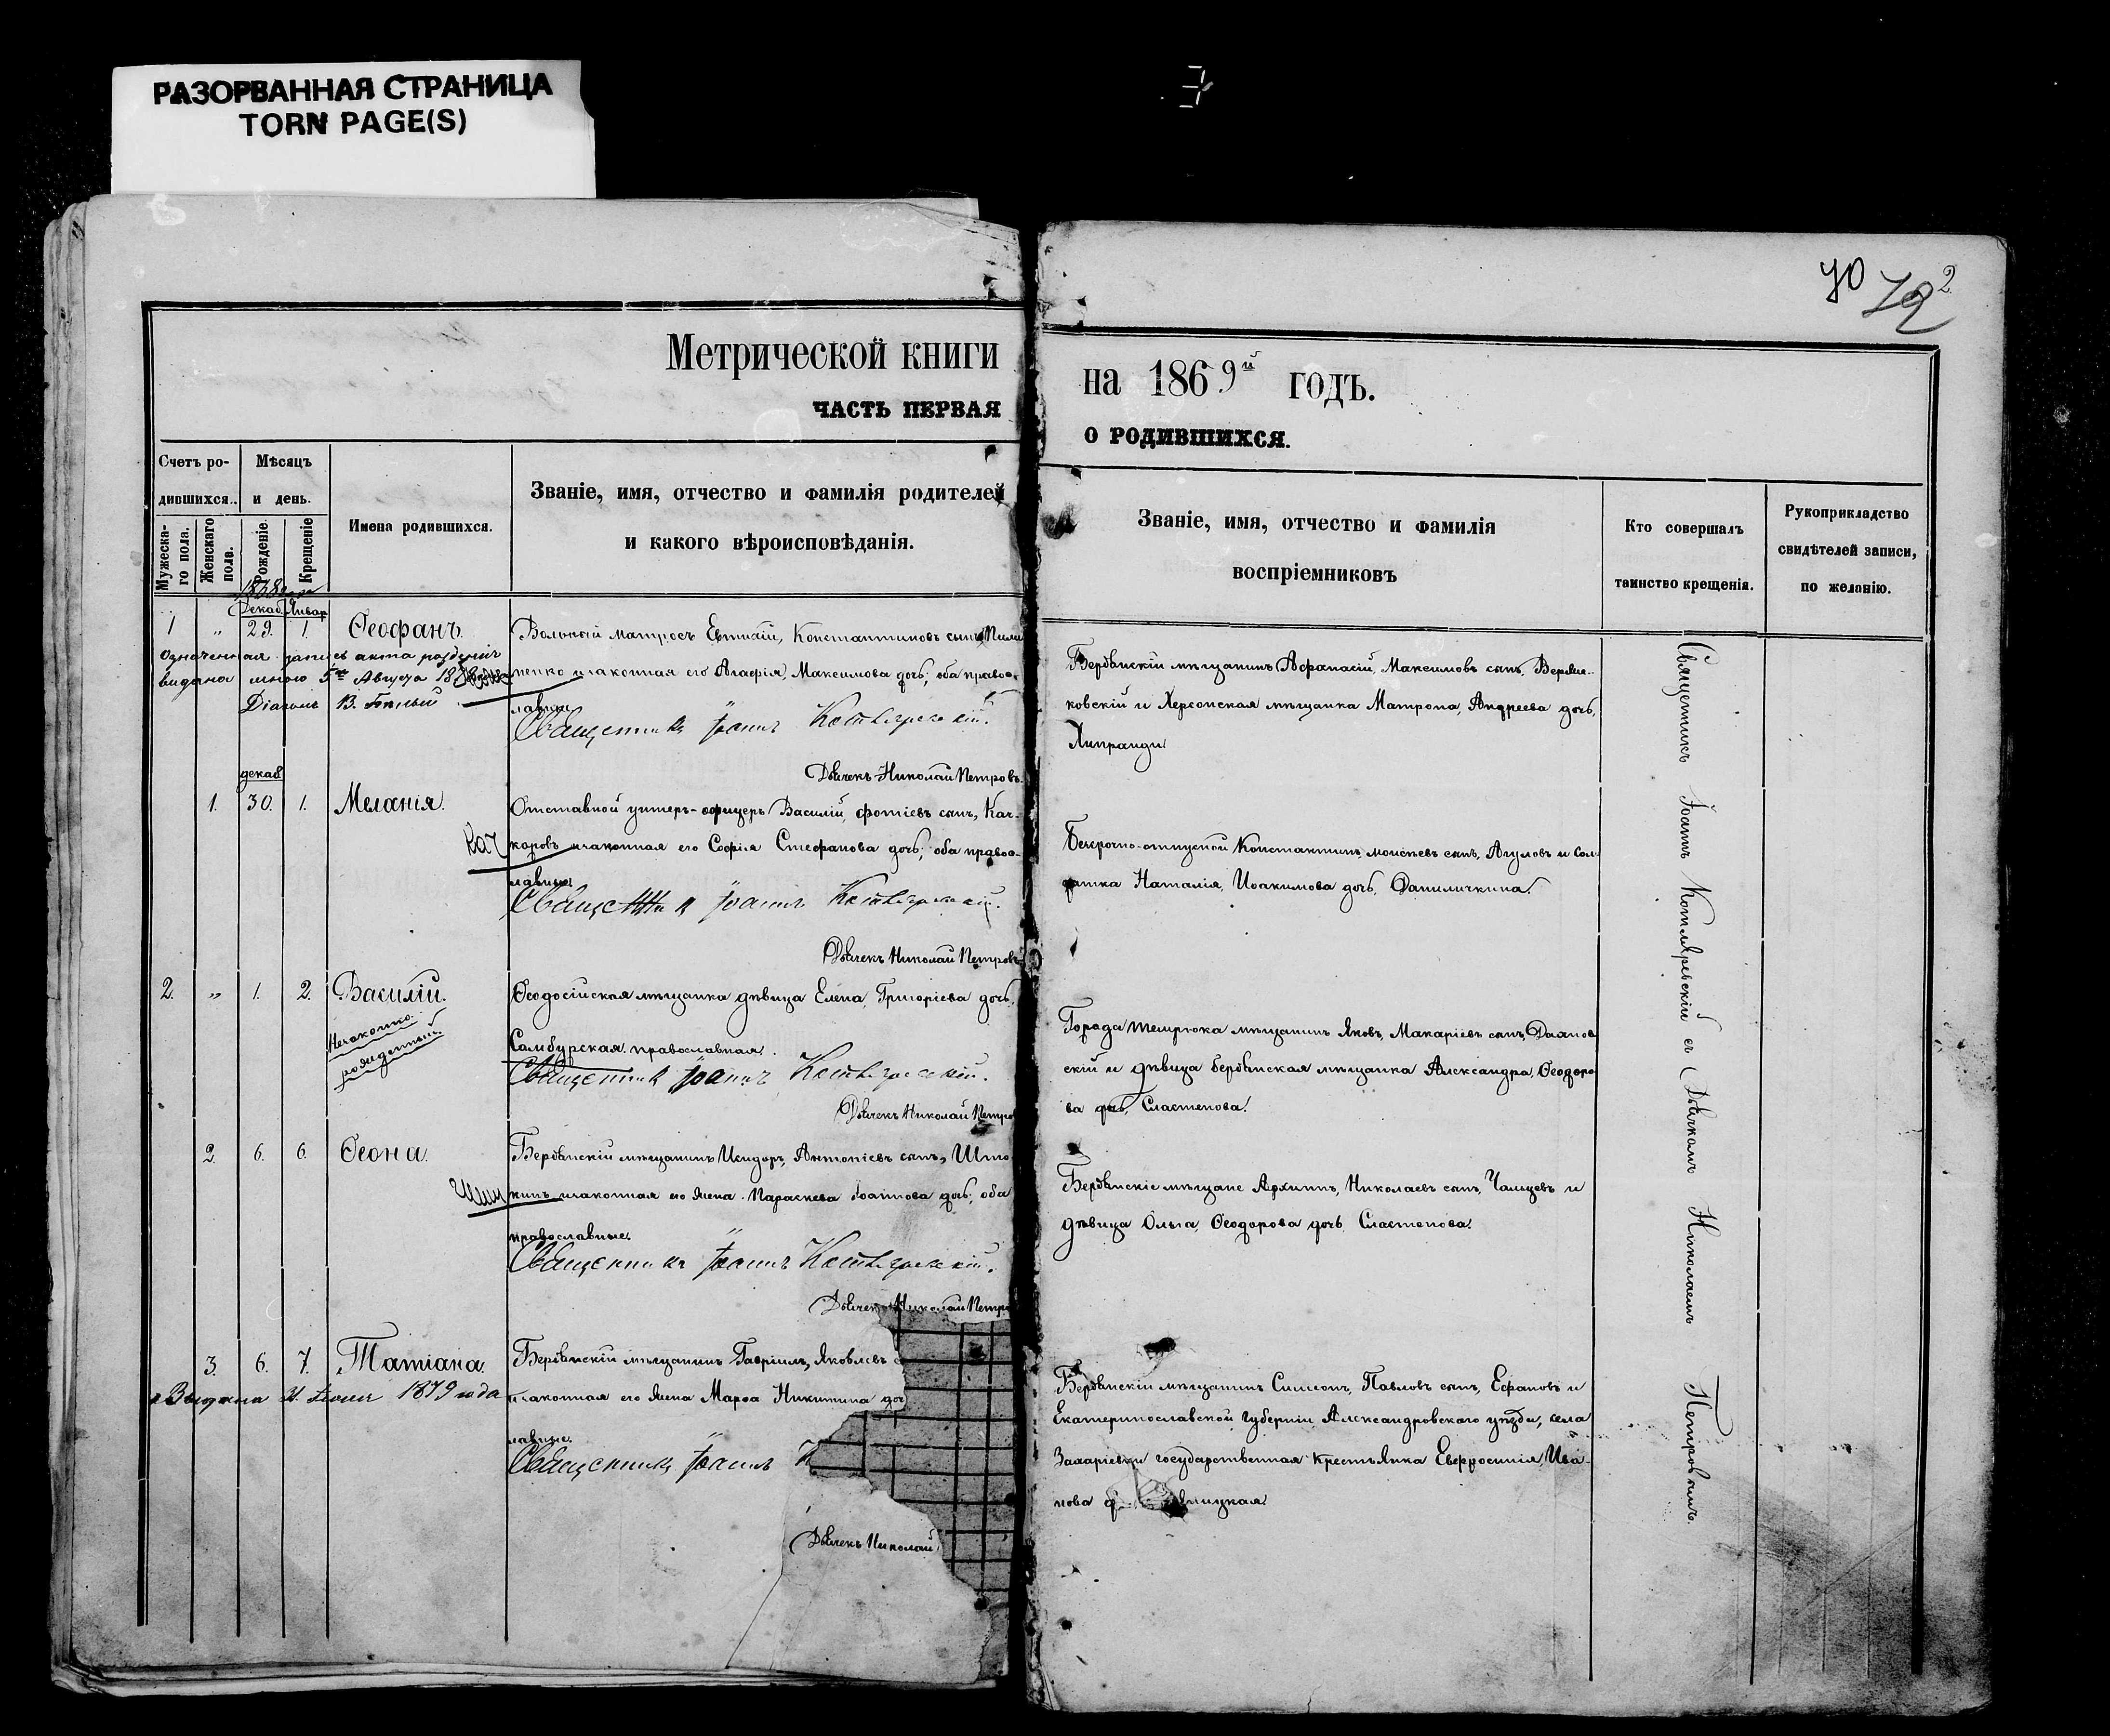 РАЗОРВАННАЯ СТРАНИЦА
TORN PAGE(S)
70 72 2
Метрической книги
на 1869й годъ.
ЧАСТЬ ПЕРВАЯ
О РОДИВШИХСЯ.
Счетъ ро-
дившихся.
Мѣсяцъ
и день.
Мужеска-
го пола.
Женскаго
пола.
Рожденіе.
Крещеніе
Имена родившихся.
Званіе, имя, отчество и фамилія родителей
и какого вѣроисповѣданія.
Званіе, имя, отчество и фамилія
воспріемниковъ
Кто совершалъ
таинство крещенія.
Рукоприкладство
свидѣтелей записи,
по желанію.
1868 года
Декаб. Январ
1 " 29. 1. Ѳеофанъ.
Вольный матросъ Евтихій, Константиновъ сынъ, Пили
пенко и законная его Агафія, Максимова дочь; оба правос-
лавные.
Священникъ Іоаннъ Котляревскій.
Дьячекъ Николай Петровъ.
Означенная запись акта
видана мною 5го Августа
Діаконъ В. Белый
Бердянскій мѣщанинъ Афанасій, Максимовъ сынъ,
ковскій и Херсонская мѣщанка Матрона, Андреева дочь,
Липранди.
декаб
1. 30. 1. Меланія.
Отставной унтеръ-офицеръ Василій, Фотіевъ сынъ, Кач-
Кач
каровъ и законная его Софія Стефанова дочь; оба правос-
лавные.
Священникъ Іоаннъ Котляревскій.
Дьячекъ Николай Петровъ
Безсрочно-отпускной Константинъ, Моисеевъ сынъ, Агуловъ и сол-
датка Наталія, Иоакимова дочь, Даниличкина.
2. " 1. 2. Василій.
Незаконно-
рожденный.
Ѳеодосійская мѣщанка дѣвица Елена, Григоріева дочь,
Самбурская. православная.
Священникъ Іоаннъ Котляревскій.
Дьячекъ Николай Петро
Города Темрюка мѣщанинъ Яковъ, Макаріевъ сынъ,
скій и дѣвица бердянская мѣщанка Александра, Ѳеодоро
ва дчь, Сластенова.
2. 6. 6. Ѳеона.
Бердянскій мѣщанинъ Исидоръ, Антоніевъ сынъ, Што
кинъ и законная его жена Параскева Іоаннова дочь; оба
православные.
Священникъ Іоаннъ Котляревскій.
Дьячекъ Николай Петро
Бердянскіе мѣщане Архиппъ, Николаевъ сынъ, Чальцевъ и
дѣвица Ольга, Ѳеодорова дочь Сластенова.
3. 6. 7. Татіана.
Бердянскій мѣщанинъ Гавріилъ, Яковлевъ с
и законная его жена Марѳа Никитина доч
лавные.
Священникъ Іоаннъ К
Дьячекъ Николай
Выдана 21 Іюня 1879 года
Бердянскій мѣщанинъ Симеонъ, Павловъ сынъ, Ефановъ и
Екатеринославской губерніи, Александровского уѣзда, села
Захаріевки государственная крестьянка Евфросинія, Ива-
нова
Священникъ Іоаннъ Котляревскій съ Дьячкомъ Николаемъ Петровымъ.